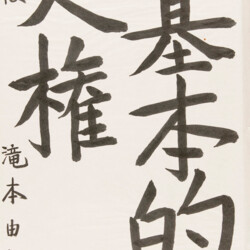 基本的
人権
滝本由